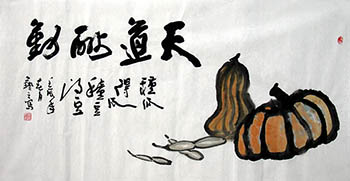 天道酬勤
種瓜
得瓜
種豆
得豆